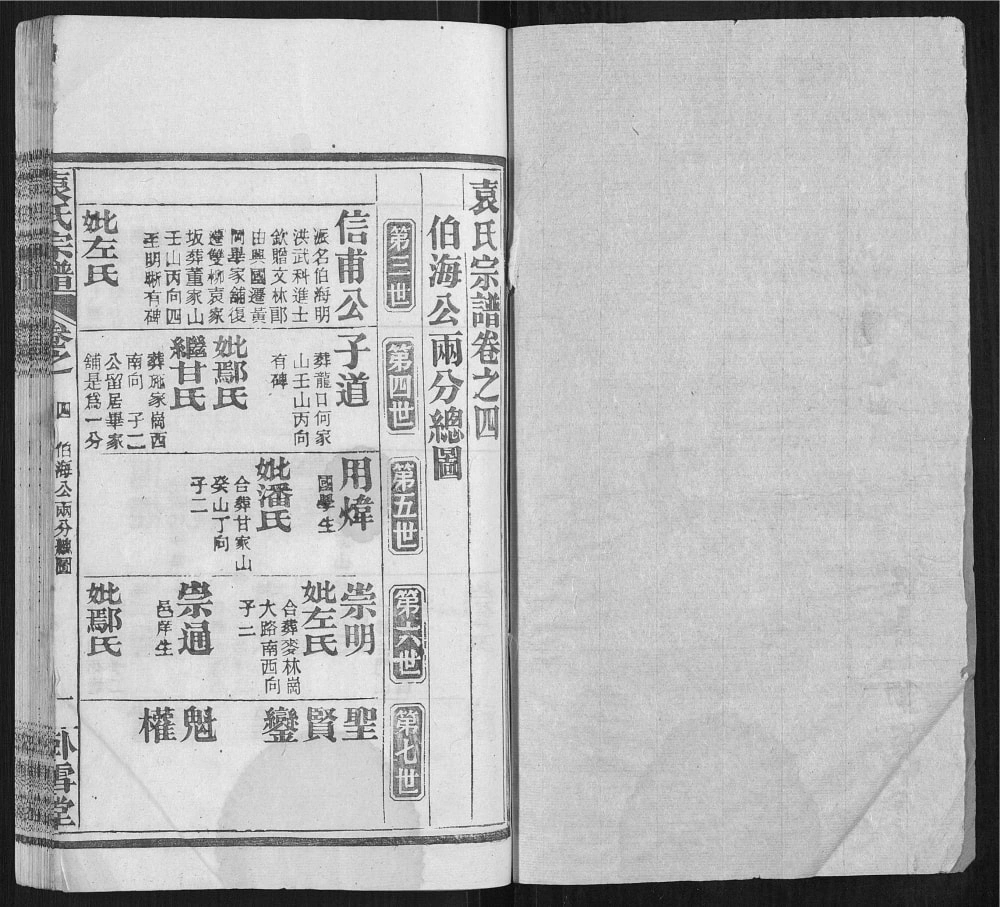 袁氏宗譜卷之四
伯海公兩分總圖
第三世
信甫公
派名伯海明
洪武科進士
欽贈文林郎
由興國遷黃
岡畢家舖復
遷雙柳袁家
坂葬董家山
壬山丙向四
至明晰有碑
妣左氏
第四世
子道
葬龍口何家
山壬山丙向
有碑
妣鄢氏
繼甘氏
葬施家崗西
南向子二
公留居畢家
舖是為一分
第五世
用煒
國學生
妣潘氏
合葬甘家山
癸山丁向
子二
第六世
崇明
妣左氏
合葬麥林崗
大路南西向
子二
崇通
邑庠生
妣鄢氏
第七世
聖
賢
鑾
魁
權
袁氏宗譜
卷之
四
伯海公兩分總圖
一
臥雪堂